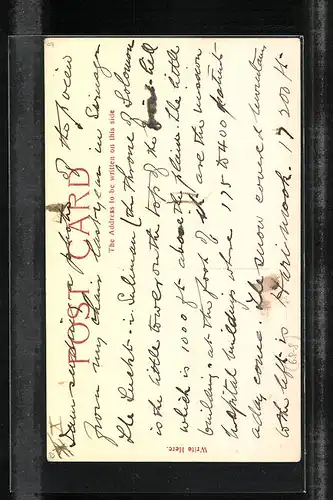 POST CARD
The Address to be written on this side
Write Here.
I am sending a photo of the view
from my chair last year in Srinagar
The Takht-i-Suliman (the Throne of Solomon
is the little tower on the top of the hill
which is 1000 ft above the plain. The little
buildings at the foot of it are the mission
hospital buildings where 175 to 400 patients
a day come. The snow covered mountain
to the left is Haramook. 17 200 ft